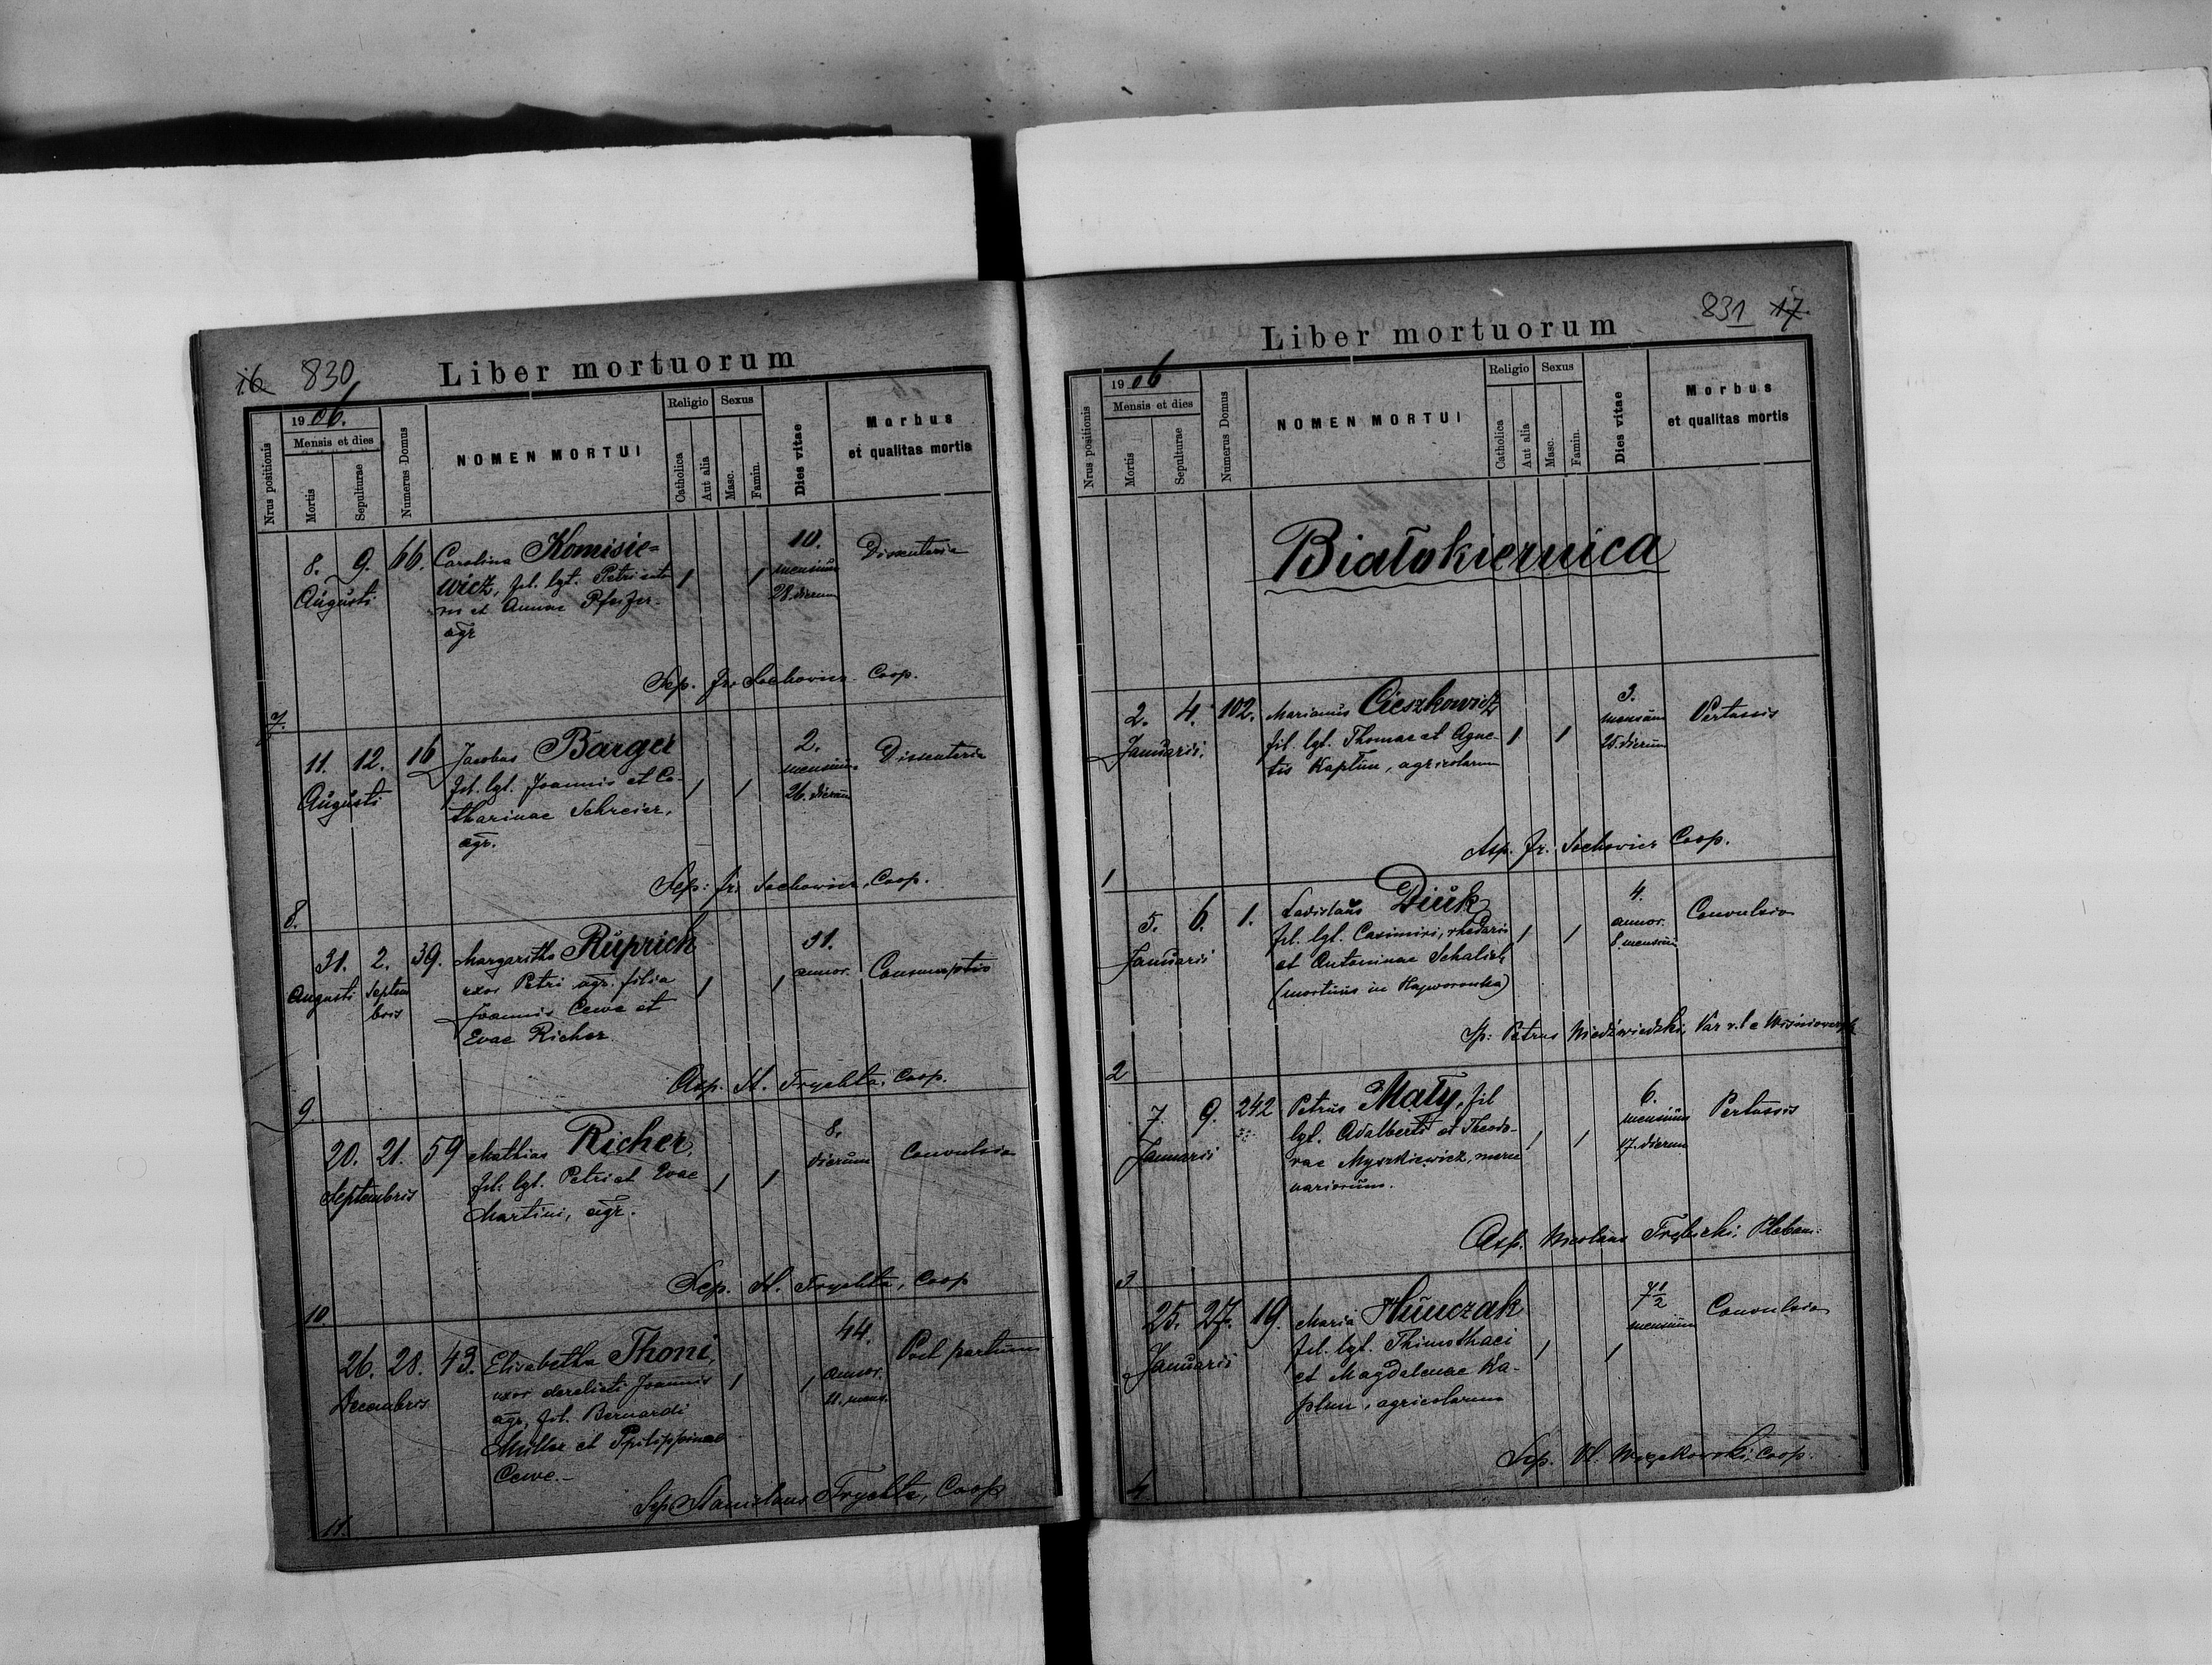 16 830
Liber mortuorum
Nrus positionis
1906.
Mensis et dies
Mortis
Sepulturae
Numerus Domus
NOMEN MORTUI
Religio
Catholica
Aut alia
Sexus
Masc.
Famin.
Dies vitae
Morbus
et qualitas mortis
8. 9. 66. Carolina Komisie= 10. Dissenteria
Augusti wicz, fil. lgt. Petri 1 1 mensium
et Annae Pfeifer 28. dierum
agr
Sep. Fr. Sochowicz Coop.
7.
11. 12. 16 Jacobus Barger 2. Dissenteria
Augusti fil. lgt. Joannis et Ca- 1 1 mensium
tharinae Schreier, 26. dierum
agr.
Sep: Fr. Sochowicz, Coop.
8.
31. 2. 39. Margaritha Rŭprich 31. Consumptio
Augusti Septem uxor Petri agr. filia 1 1 annor.
bris Joannis Cewe et
Evae Richer
Asp. St. Trychta, Coop.
9.
20. 21. 59 Mathias Richer, 8. Convulsio
Septembris fil. lgt. Petri et Evae 1 1 dierum
Martini, agr.
Sep. St. Trychta, Coop
10
26. 28. 43. Elisabetha Thoni, 44. Post partum
Decembris uxor derelicti Joannis 1 1 annor.
agr, fil. Bernardi 11. mens.
Müller et Philippinae
Cewe.-
Sep Stanislaus Trychta, Coop
11.
831 17
Liber mortuorum
Nrus positionis
1906
Mensis et dies
Mortis
Sepulturae
Numerus Domus
NOMEN MORTUI
Religio
Catholica
Aut alia
Sexus
Masc.
Famin.
Dies vitae
Morbus
et qualitas mortis
Białokiernica
2. 4. 102. Marianus Cieszkowicz 3. Pertussis
Januarii. fil. lgt. Thomae et Agne- 1 1 mensium
tis Kaptŭn, agricolarum 25. dierum
Asp. Fr. Sochowicz Coop.
1
5. 6. 1. Ladislaus Diŭk 4. Convulsio
Januarii fil. lgt. Casimiri, rhedarii 1 1 annor.
et Antoninae Schalich 8. mensium
(mortuus in Hajworonka)
Sp: Petrus Niedźwiedzki, Var r. l e Wiśniowczyk
2
7. 9. 242 Petrus Mały, fil 6. Pertussis
Januarii lgt. Adalberti et Theodo- 1 1 mensium
rae Myszkiewicz, merce 17. dierum
nariorum.
Asp. Nicolaus Trębicki, Pleban:
3
25. 27. 19. Maria Hŭnczak 7 1/2 Convulsio
Januarii fil. lgt. Thimothaei 1 1 mensium
et Magdalenae Ka-
ptun, agricolarum
Sep. Coop.
4.